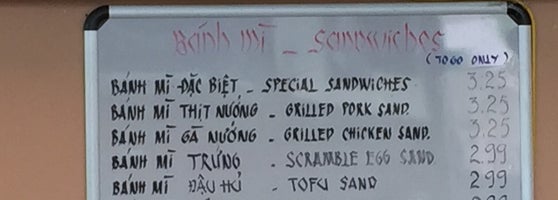 Bánh mĩ - Sandwiches
(TOGO ONLY)
BÁNH MĨ ĐẶC BIỆT - SPECIAL SANDWICHES 3.25
BÁNH MĨ THỊT NƯỚNG - GRILLED PORK SAND. 3.25
BÁNH MĨ GÀ NƯỚNG - GRILLED CHICKEN SAND. 3.25
BÁNH MĨ TRỨNG - SCRAMBLE EGG SAND 2.99
BÁNH MĨ ĐẬU HỦ - TOFU SAND 2.99